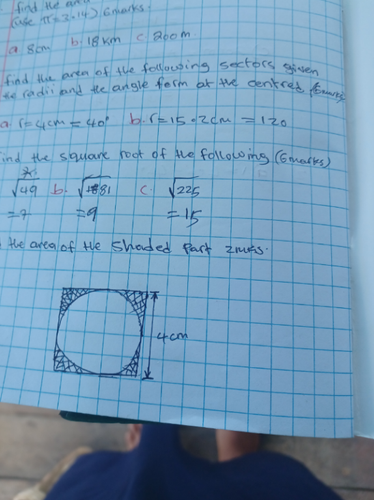 find the area
(use π = 3.14) 6marks.
a 8cm b. 18km c. 200m
find the area of the following sectors given
radii and the angle form at the centres
a r=4cm = 40° b. r=15.2cm = 120
ind the square root of the following (6marks)
√49 b. √81 c. √225
=7 =9 =15
the area of the shaded part 2mks.
4cm